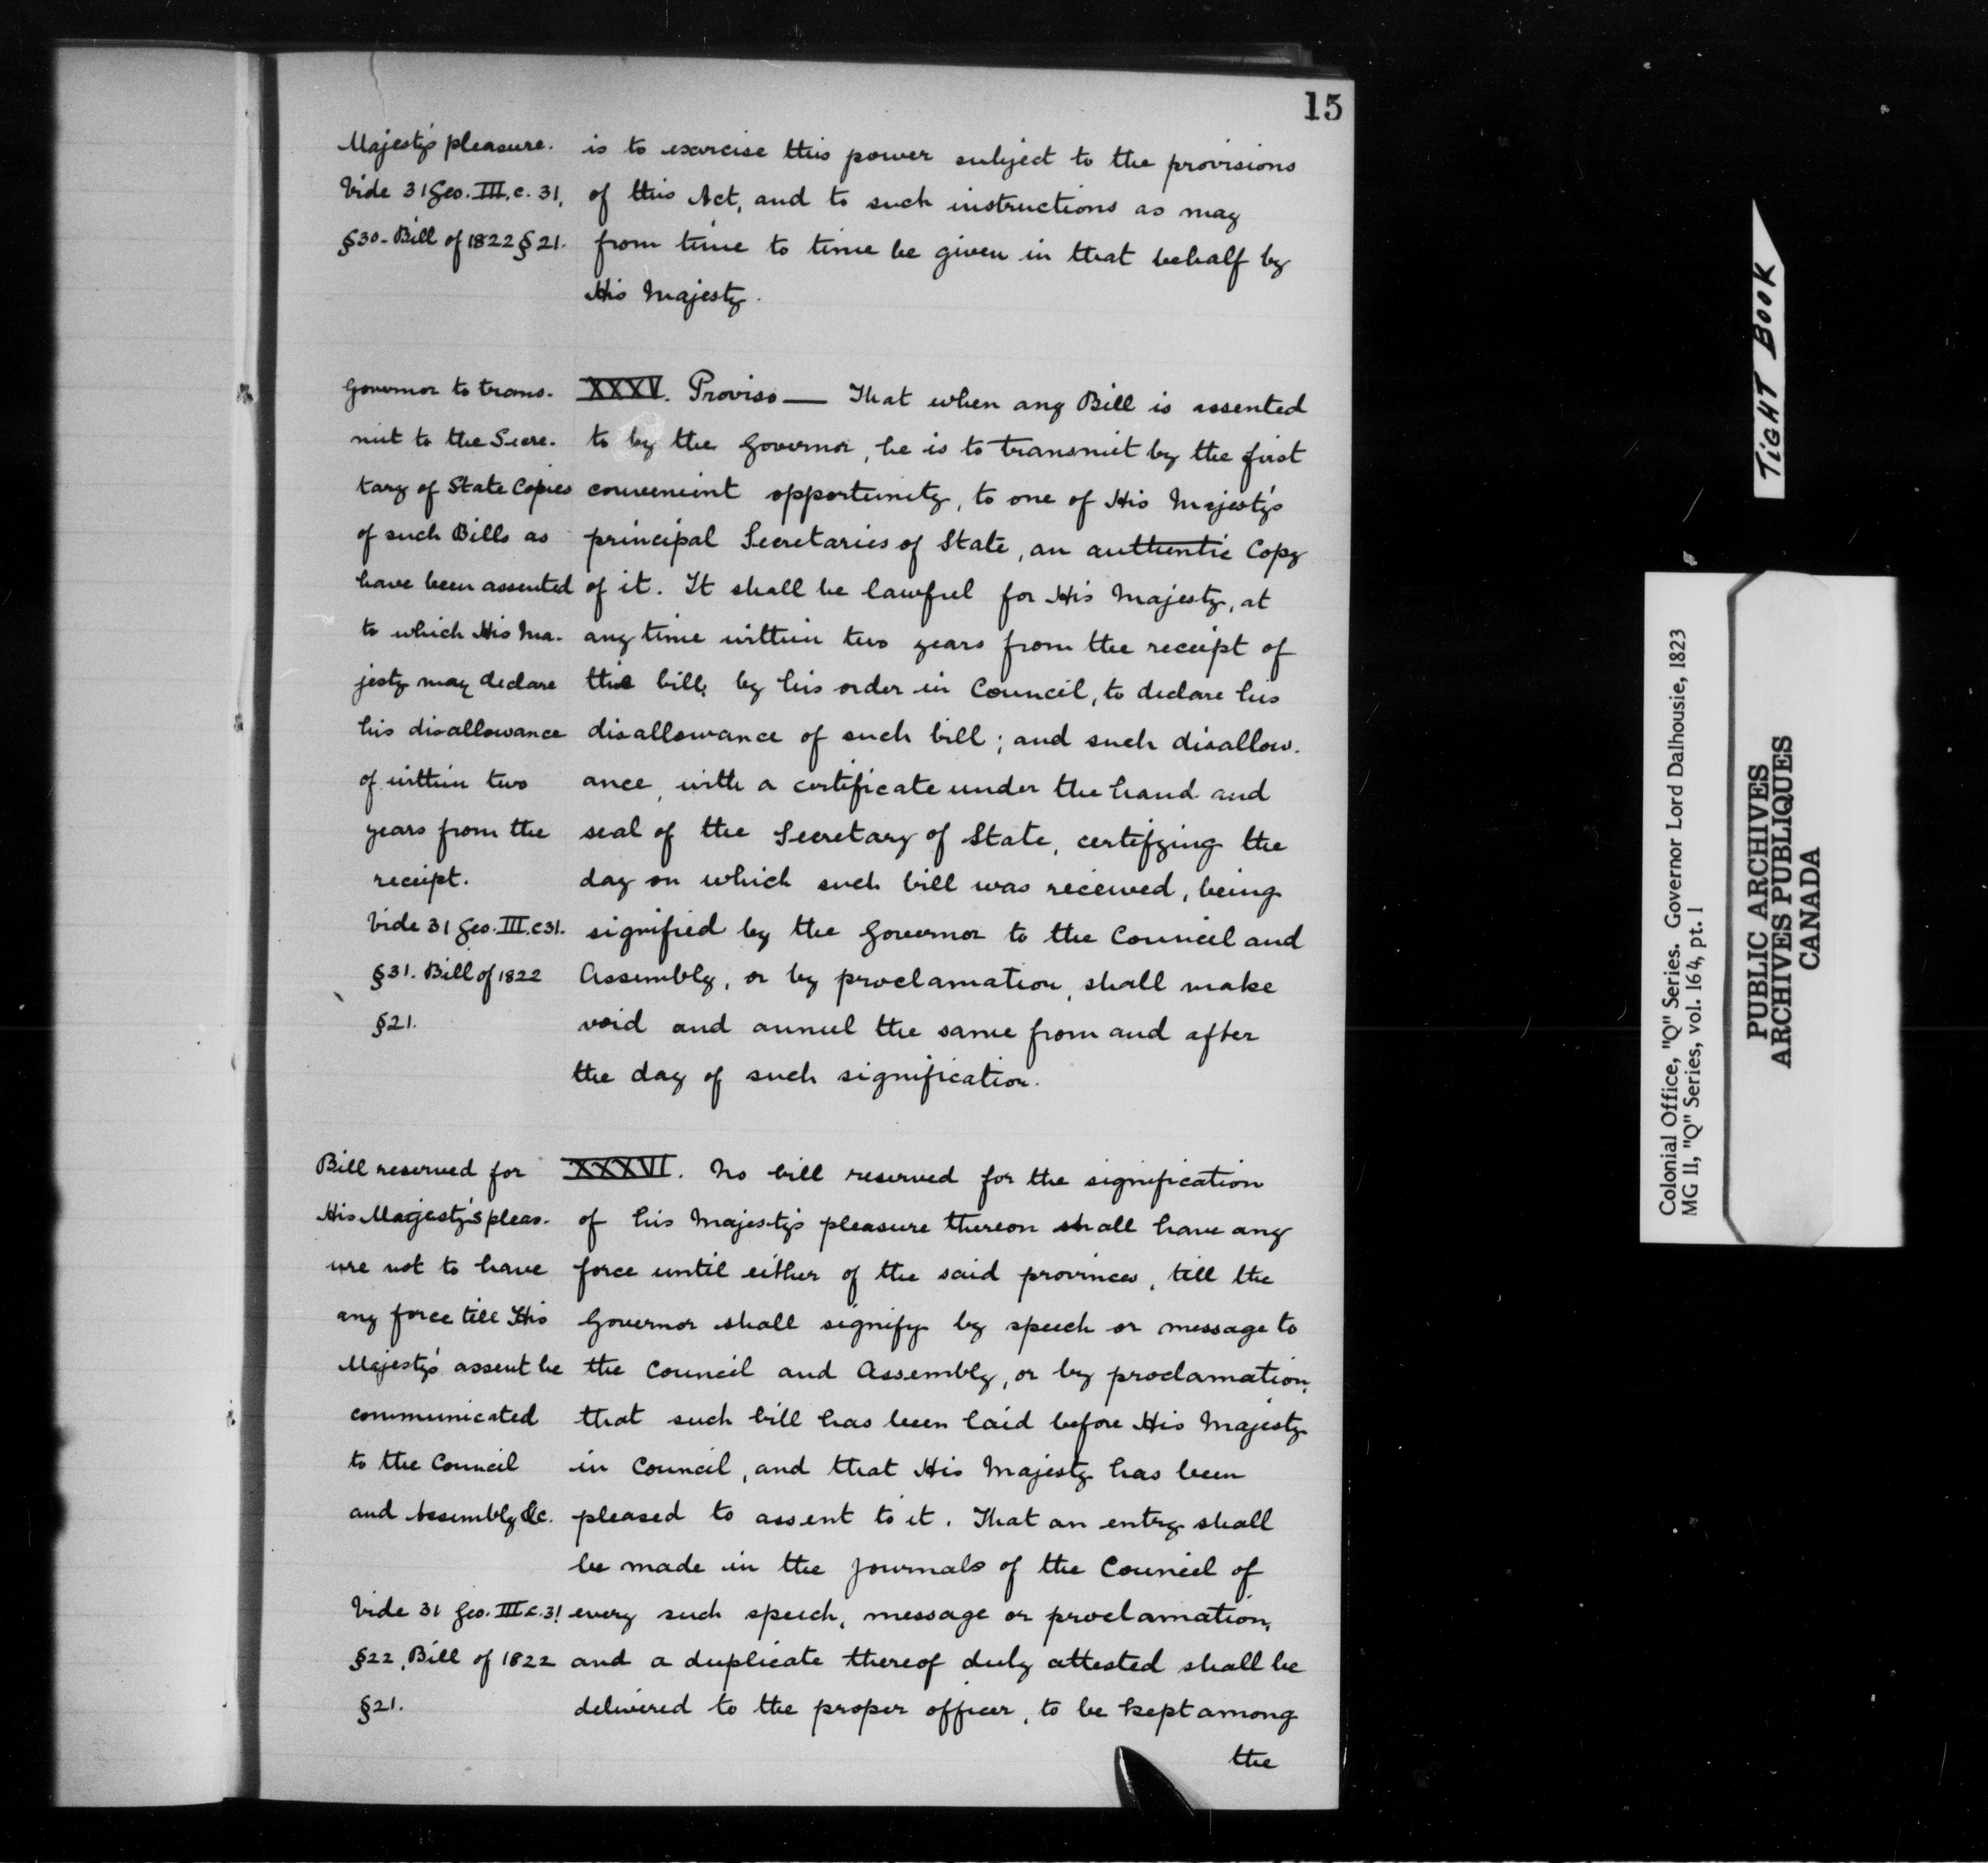 15
Majesty's pleasure.
Vide 31 Geo. III. c. 31,
§30 - Bill of 1822 § 21.
is to exercise this power subject to the provisions
of this Act, and to such instructions as may
from time to time be given in that behalf by
His Majesty.
Governor to trans-
mit to the Secre-
tary of State Copies
of such Bills as
have been assented
to which His Ma-
jesty may declare
his disallowance
of within two
years from the
receipt.
Vide 31 Geo. III. c31.
§31. Bill of 1822
§21.
XXXV. Proviso — That when any Bill is assented
to by the Governor, he is to transmit by the first
convenient opportunity, to one of His Majesty's
principal Secretaries of State, an authentic Copy
of it. It shall be lawful for His Majesty, at
any time within two years from the receipt of
the bill, by his order in Council, to declare his
disallowance of such bill; and such disallow-
ance, with a certificate under the hand and
seal of the Secretary of State, certifying the
day on which such bill was received, being
signified by the Governor to the Council and
Assembly, or by proclamation, shall make
void and annul the same from and after
the day of such signification.
Bill reserved for
His Majesty's pleas-
ure not to have
any force till His
Majesty's assent be
communicated
to the Council
and Assembly &c.
Vide 31 Geo. III c. 31
§22, Bill of 1822
§21.
XXXVI. No bill reserved for the signification
of his Majesty's pleasure thereon shall have any
force until either of the said provinces, till the
Governor shall signify by speech or message to
the Council and Assembly, or by proclamation,
that such bill has been laid before His Majesty
in Council, and that His Majesty has been
pleased to assent to it. That an entry shall
be made in the journals of the Council of
every such speech, message or proclamation,
and a duplicate thereof duly attested shall be
delivered to the proper officer, to be kept among
the
TIGHT BOOK
Colonial Office, "Q" Series. Governor Lord Dalhousie, 1823
MG 11, "Q" Series, vol. 164, pt. 1
PUBLIC ARCHIVES
ARCHIVES PUBLIQUES
CANADA